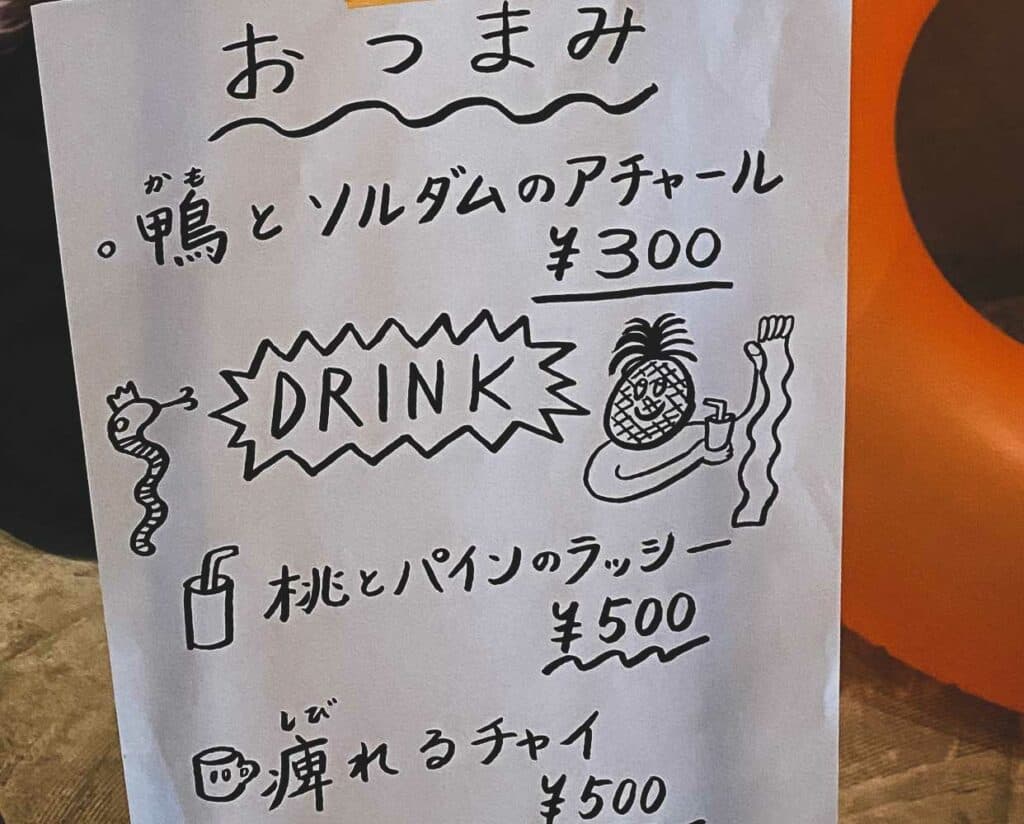 おつまみ
かも
。鴨とソルダムのアチャール
¥300
DRINK
桃とパインのラッシー
¥500
しび
痺れるチャイ
¥500